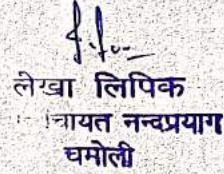 लेखा लिपिक
चायत नन्दप्रयाग
चमोली